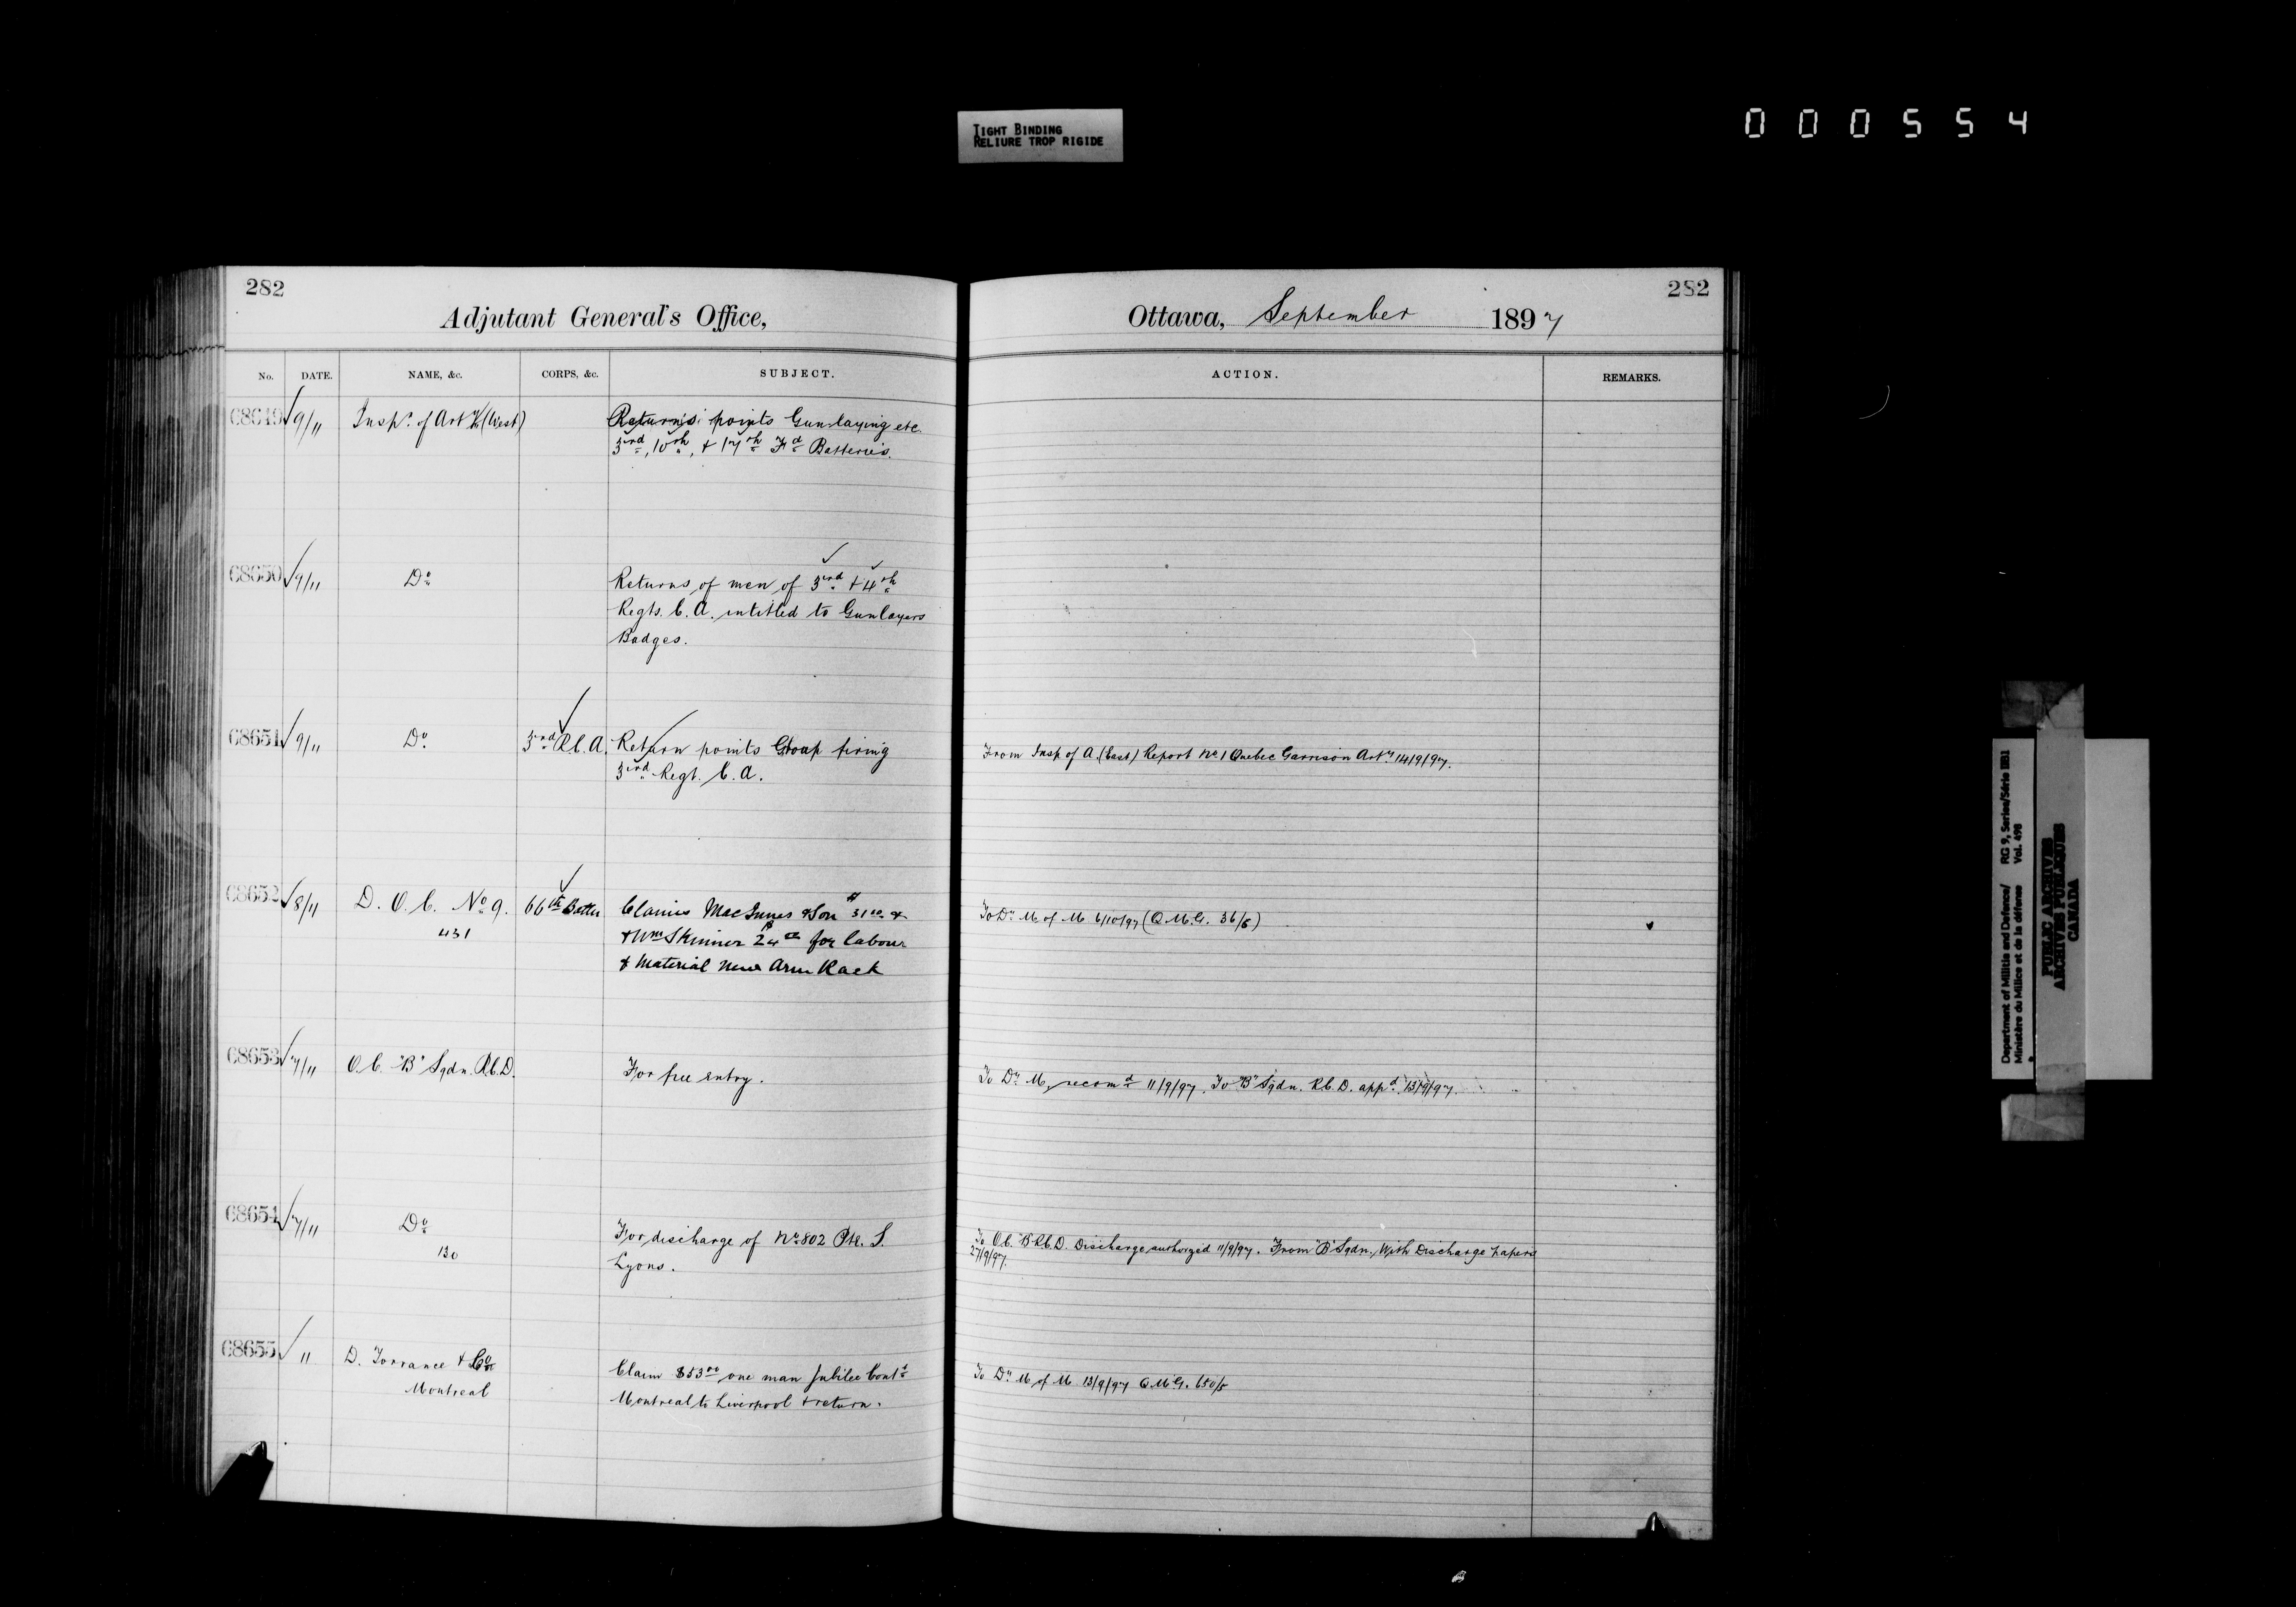 TIGHT BINDING
RELIURE TROP RIGIDE
000554
282
Adjutant General's Office,
No. DATE. NAME, &c. CORPS, &c. SUBJECT.
68649 9/11 Insp.r of Art.y (West) Returns points Gunlaying etc.
3rd, 10th, + 17th Fd Batteries.
68650 9/11 Do Returns of men of 3rd + 4th
Regts. C. A. intitled to Gunlayers
Badges.
68651 9/11 Do 3rd R.C.A. Return points Group firing
3rd Regt. C. A.
68652 8/11 D. O. C. No 9. 66th Battn Claims MacInnes & Son $31.00 &
431 + Wm Skinner $24.00 for labour
& Material New Arm Rack
68653 7/11 O.C. "B" Sqdn. R.C.D. For free entry.
68654 7/11 Do For discharge of No 802 Pte. S.
130 Lyons.
68655 11 D. Torrance & Co Claim $53.00 one man Jubilee Cont.t
Montreal Montreal to Liverpool & return.
282
Ottawa, September 1897
ACTION. REMARKS.
From Insp of A. (East) Report No 1 Quebec Garrison Art.y 14/9/97.
To Dy M. of M. 6/10/97 (Q.M.G. 36/6)
To Dy M. recomd 11/9/97. To "B" Sqdn. R.C.D. appd. 13/9/97.
To O.C. "B" R.C.D. Discharge authorized 11/9/97. From "B" Sqdn. With Discharge papers
27/9/97.
To Dy M of M 13/9/97 Q.M.G. 650/5
Department of Militia and Defence/ RG 9, Series/Série IIB1
Ministère du Milice et de la défense Vol. 498
PUBLIC ARCHIVES
ARCHIVES PUBLIQUES
CANADA